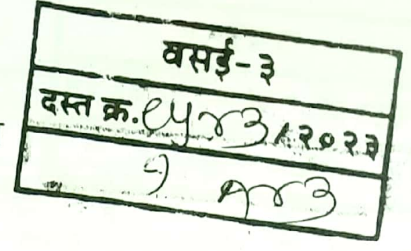 वसई-३
दस्त क्र. ९५४३/२०२३
१ १४३